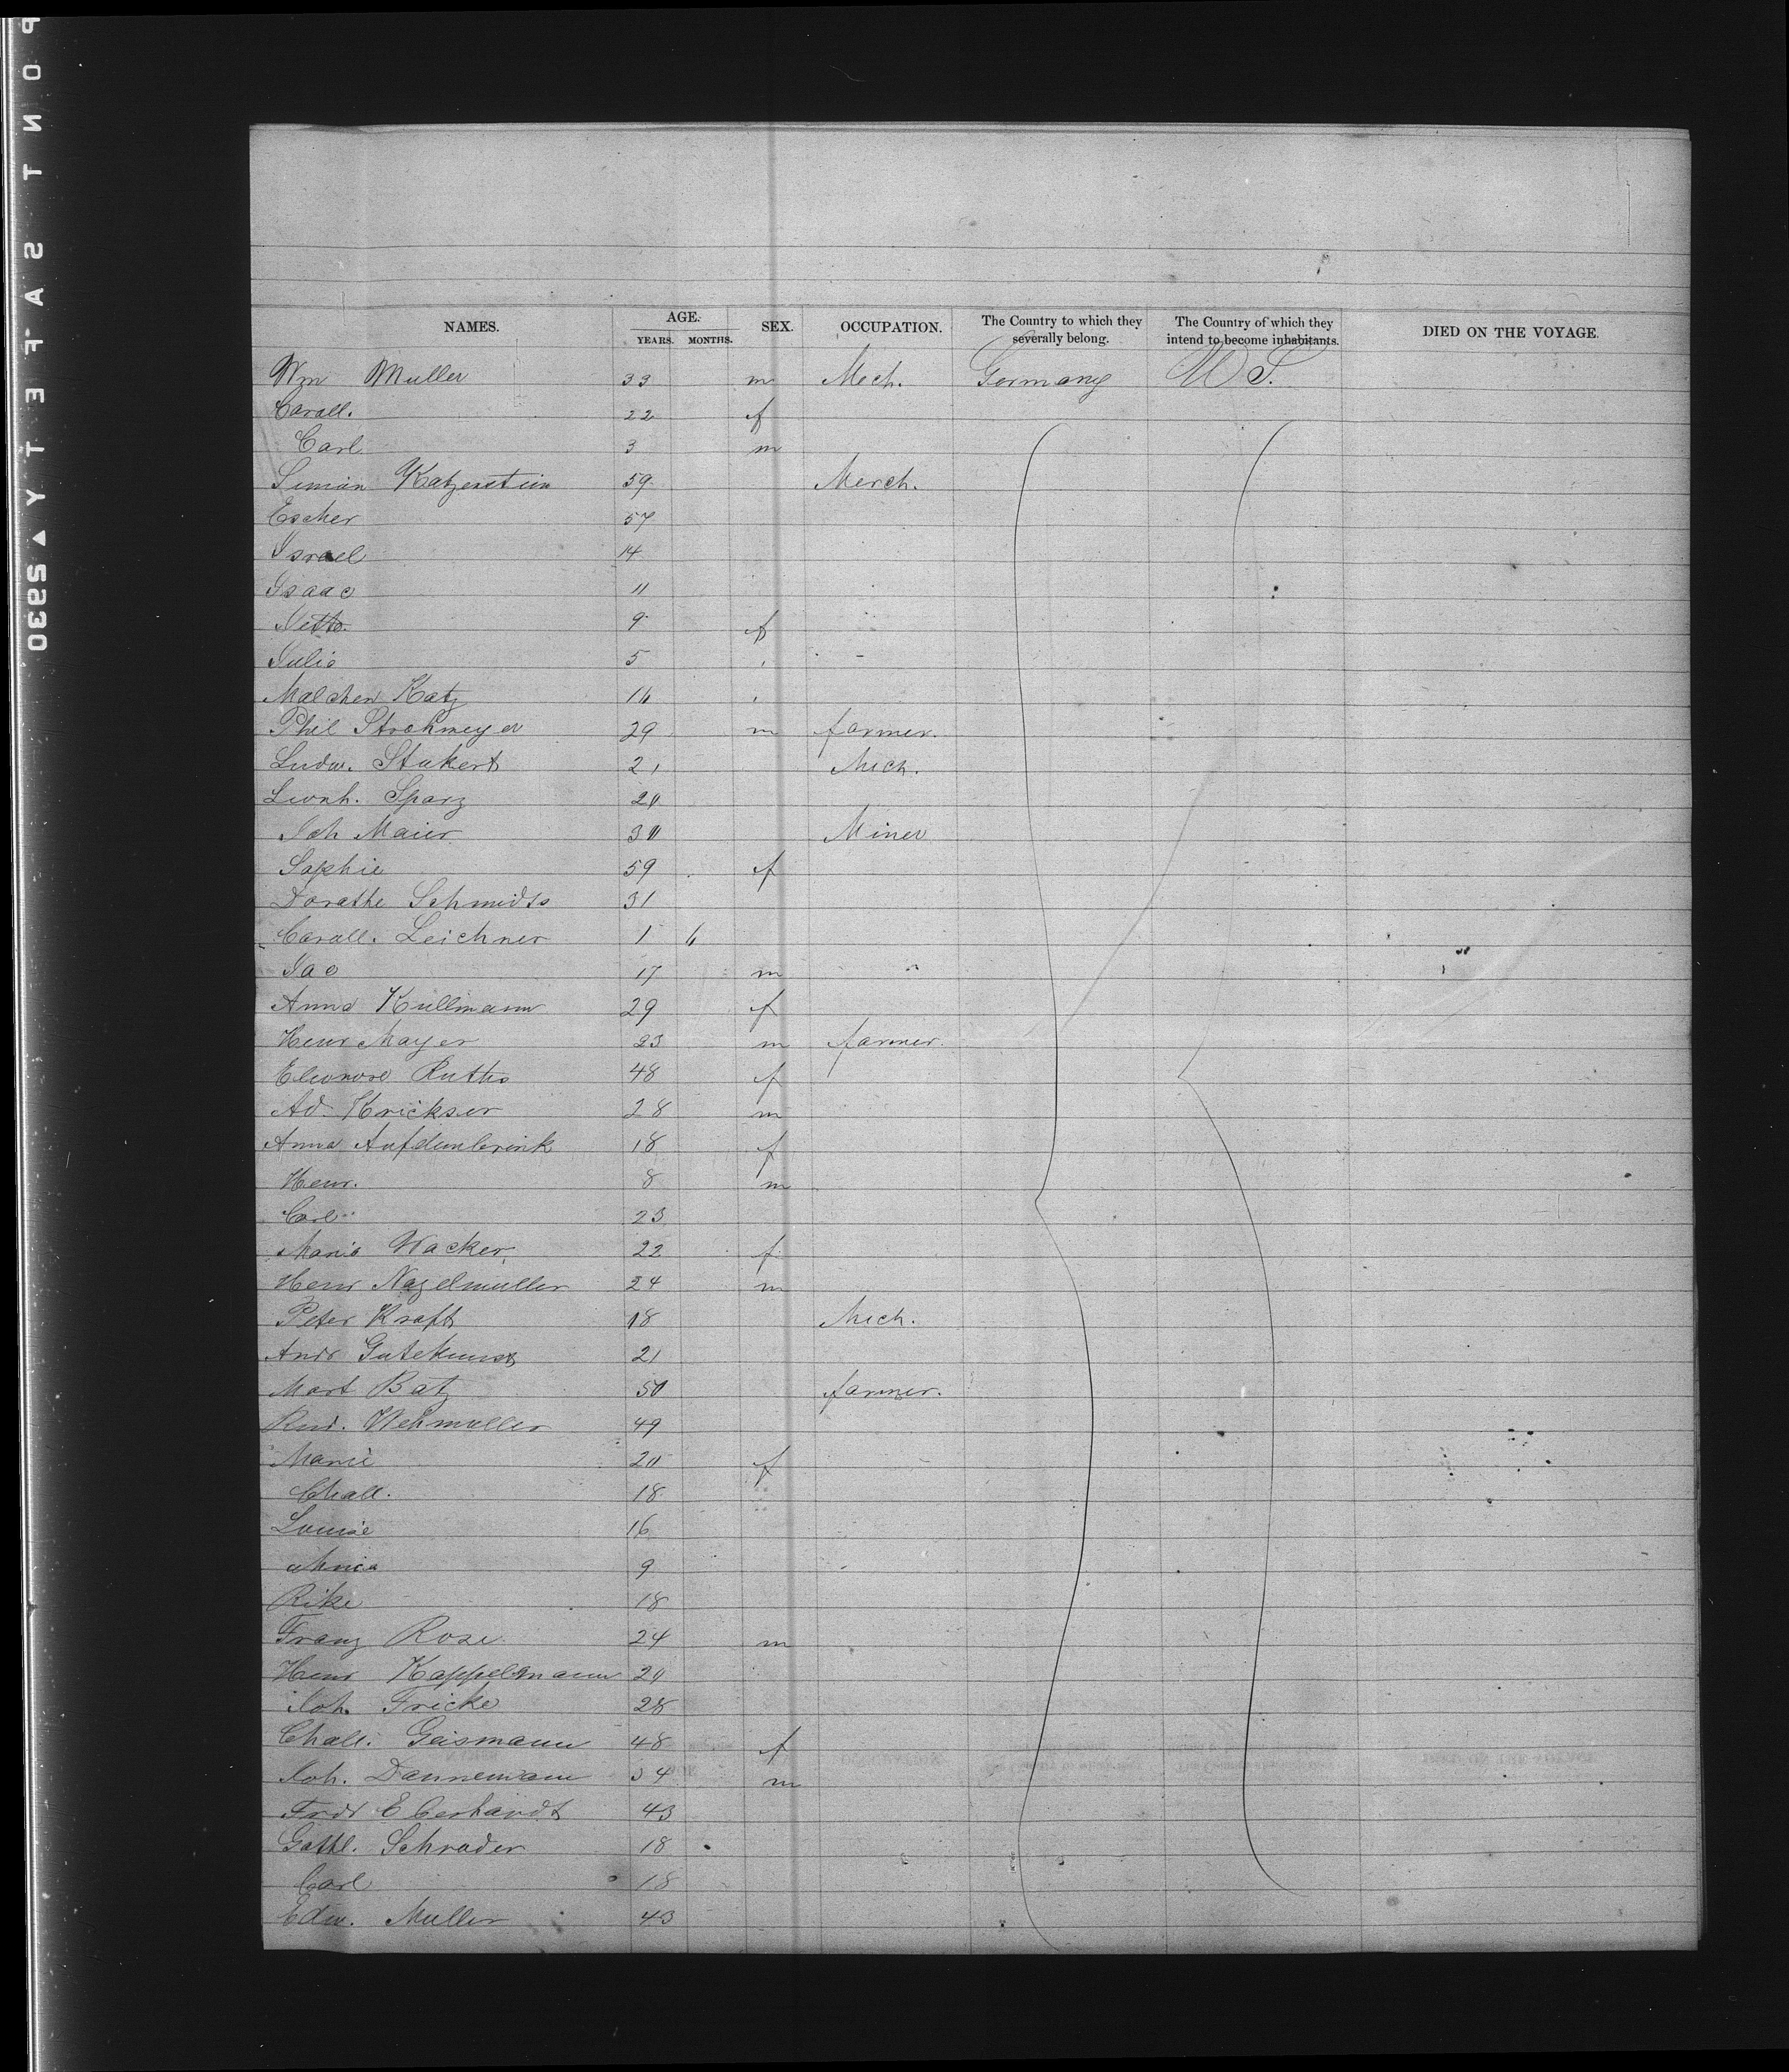 NAMES. AGE. YEARS. MONTHS. SEX. OCCUPATION. The Country to which they severally belong. The Country of which they intend to become inhabitants. DIED ON THE VOYAGE.
Wm Muller 33 m Mech. Germany U S.
Caroll. 22 f
Carl 3 m
Simon Katzenstein 59 Merch.
Escher 57
Israel 14
Isaac 11
Nette 9 f
Julie 5
Malchen Katz 16
Phil Strohmeyer 29 m farmer.
Ludw. Stukert 21 Mech.
Leonh. Sparz 20
Joh Maier 30 Miner
Sophie 59 f
Dorathe Schmidts 31
Caroll. Leichner 1 6
Jac 17 m
Anna Kullmann 29 f
Henr Mayer 23 m farmer.
Eleonore Ruths 48 f
Ad. Krickser 28 m
Anna Aufdembrink 18 f
Henr. 8 m
Carl 23
Maria Wacker 22 f
Henr Nagelmuller 24 m
Peter Kraft 18 Mech.
Andr Gutekunst 21
Mart Batz 50 farmer.
Rud. Wehmuller 49
Marie 20 f
Chall. 18
Louise 16
9
Rike 18
Franz Rose 24 m
Henr Kappelmann 20
Joh. Fricke 28
Chall. Geismann 48 f
Joh. Dannemann 34 m
Fredr Eberhardt 43
Gottl. Schrader 18
Carl 18
Edw. Muller 43
SAFETY 5930